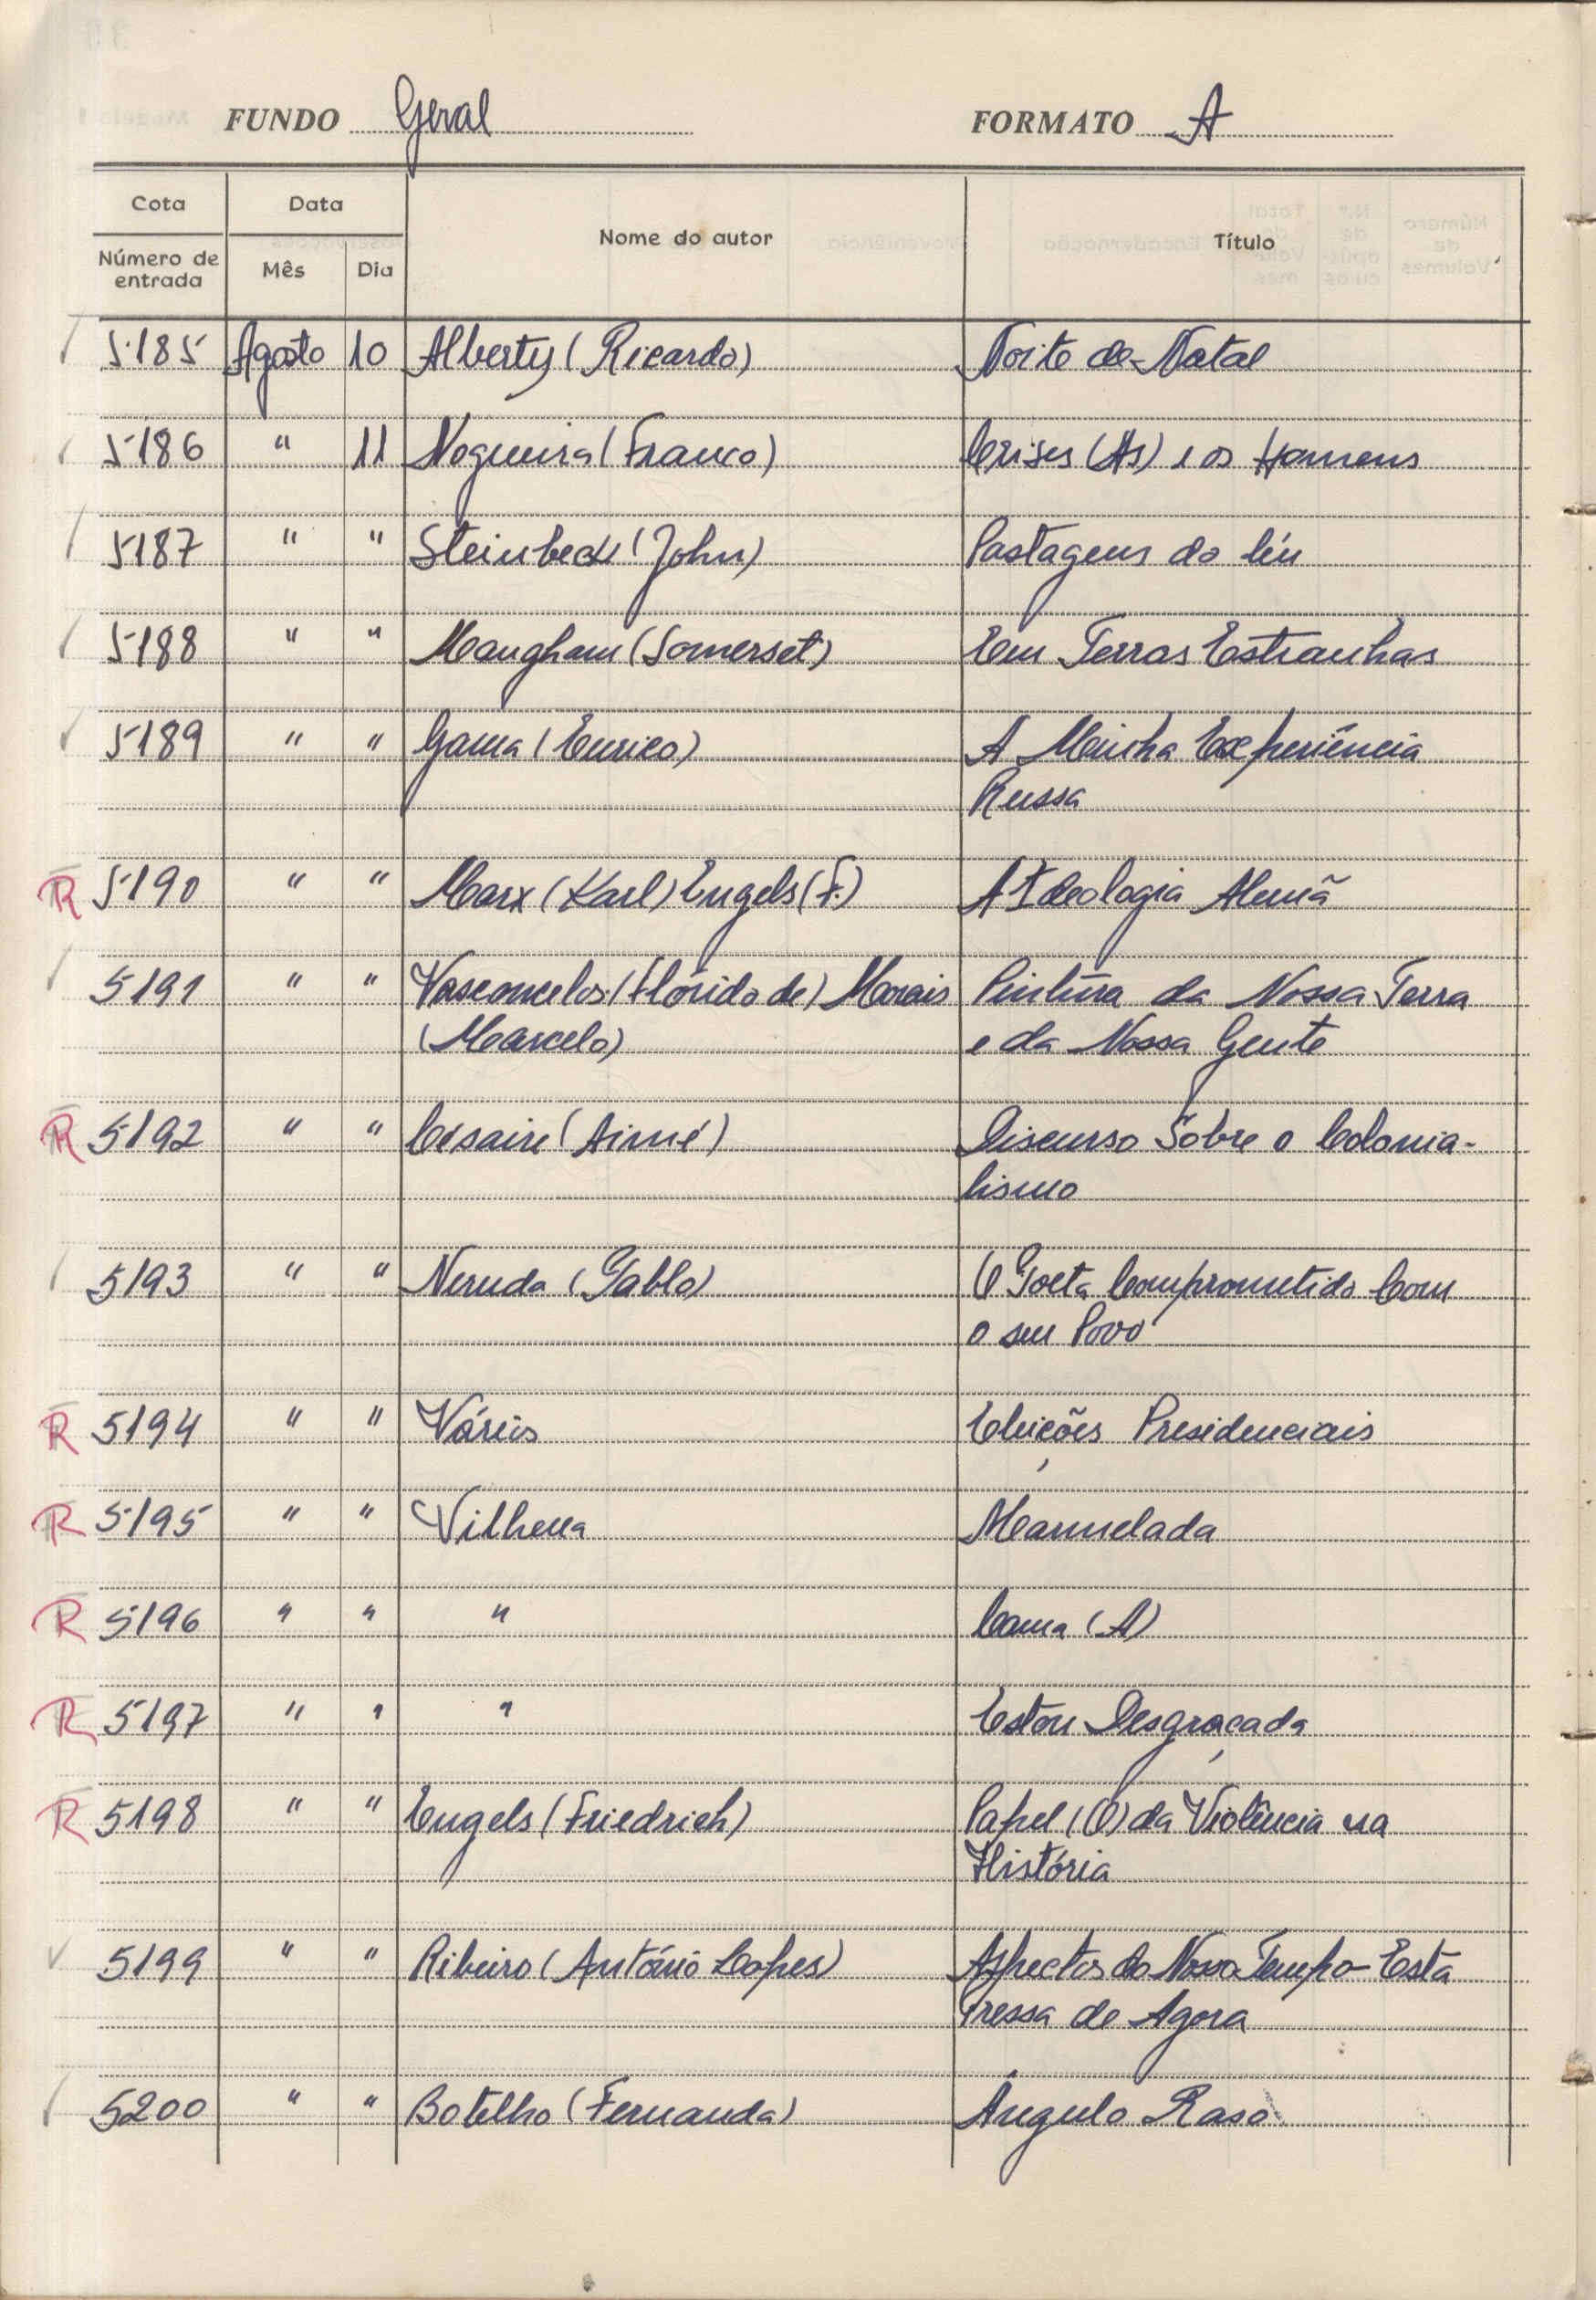 FUNDO Geral FORMATO A
Cota Data Nome do autor Título
Número de entrada Mês Dia
5185 Agosto 10 Alberty (Ricardo) Noite de Natal
5186 " 11 Nogueira (Franco) Crises (As) e os Homens
5187 " " Steinbeck (John) Pastagens do Céu
5188 " " Maugham (Somerset) Em Terras Estranhas
5189 " " Gama (Eurico) A Minha Experiência
Russa
R 5190 " " Marx (Karl) Engels (F.) A Ideologia Alemã
5191 " " Vasconcelos (Flórido de) Morais Pintura da Nossa Terra
(Marcelo) e da Nossa Gente
R 5192 " " Césaire (Aimé) Discurso Sobre o Colonia-
lismo
5193 " " Neruda (Pablo) O Poeta Comprometido Com
o seu Povo
R 5194 " " Vários Eleições Presidenciais
R 5195 " " Vilhena Marmelada
R 5196 " " " Cama (A)
R 5197 " " " Estou Desgraçada
R 5198 " " Engels (Friedrich) Papel (O) da Violência na
História
5199 " " Ribeiro (António Lopes) Aspectos do Novo Tempo - Esta
Pressa de Agora
5200 " " Botelho (Fernanda) Ângulo Raso